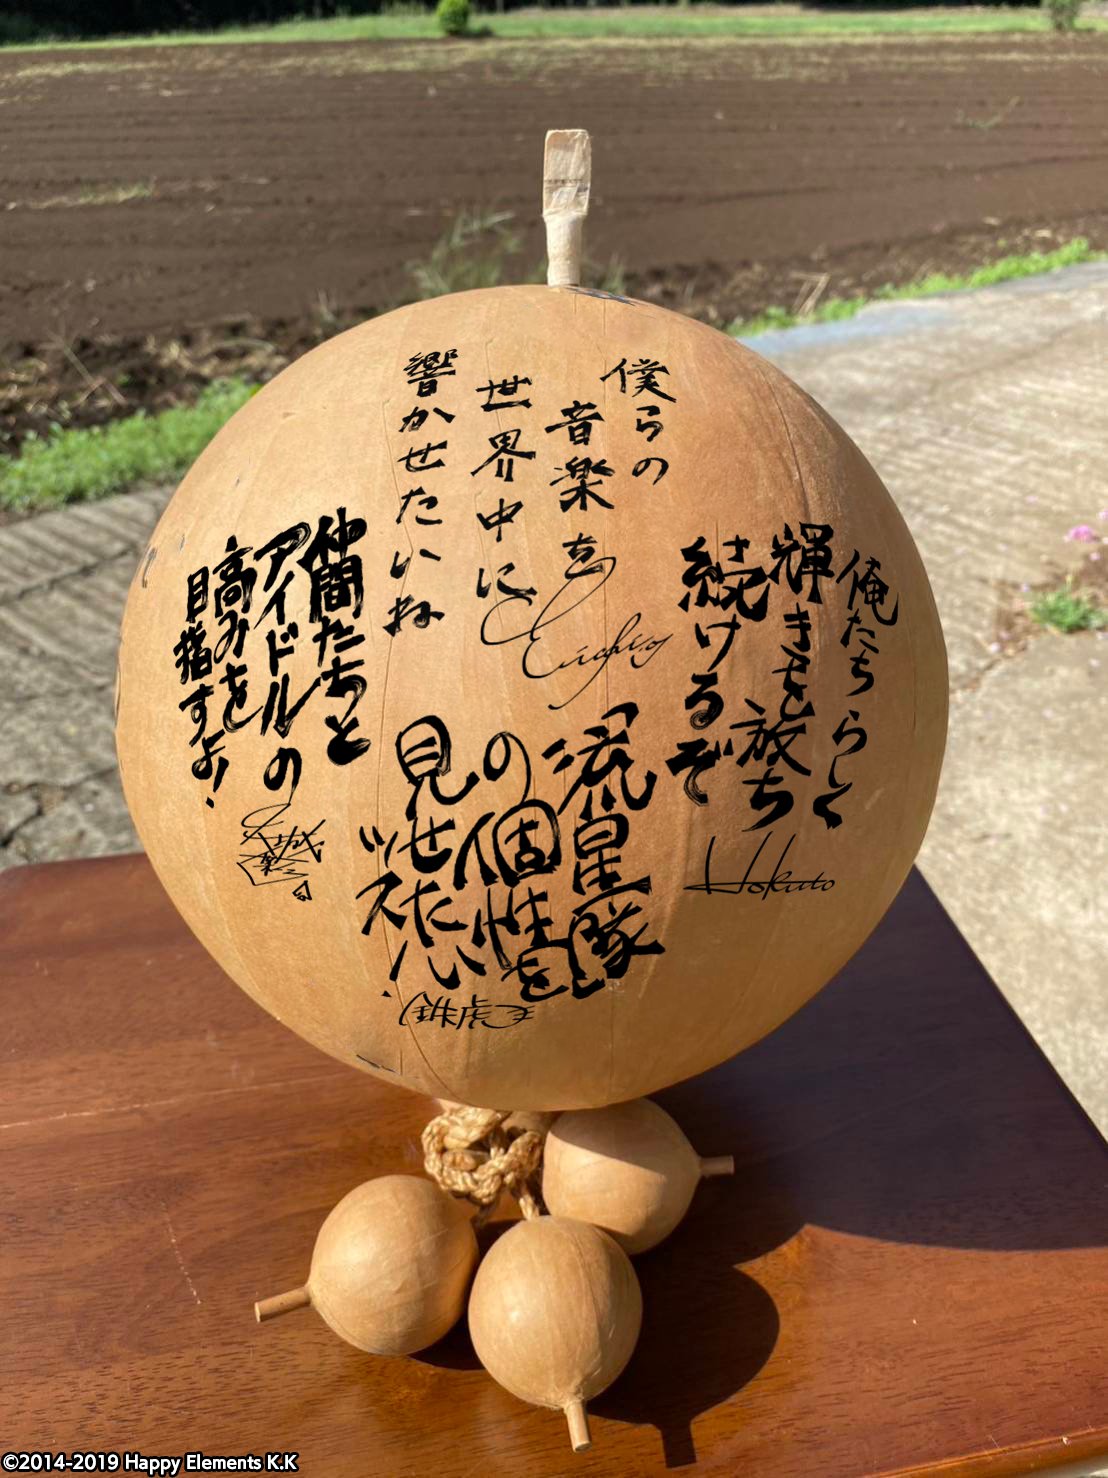 僕らの
音楽を
世界中に
響かせたいね
Eichi
俺たちらしく
輝きを放ち
続けるぞ
Hokuto
仲間たちと
アイドルの
高みを
目指すよ!
流星隊
の個性を
見せたい
ッス!
鉄虎
©2014-2019 Happy Elements K.K